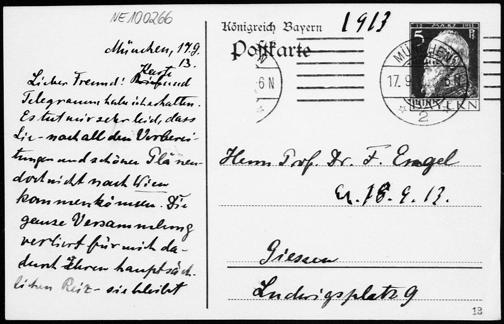 NE100266
München, 17.9.
13.
Lieber Freund! Brief und
Karte
Telegramm habe ich erhalten.
Es tut mir sehr leid, dass
Sie – nach all den Vorberei-
tungen und schönen Plänen
doch nicht nach Wien
kommen können. Die
ganze Versammlung
verliert für mich da-
durch Ihren hauptsäch-
lichen Reiz – sie bleibt
Königreich Bayern
1913
Postkarte
5
MÜNCHEN
17.9.
6 N
BAYERN
2
Herrn Prof. Dr. F. Engel
18.9.13.
Giessen
Ludwigsplatz 9
13